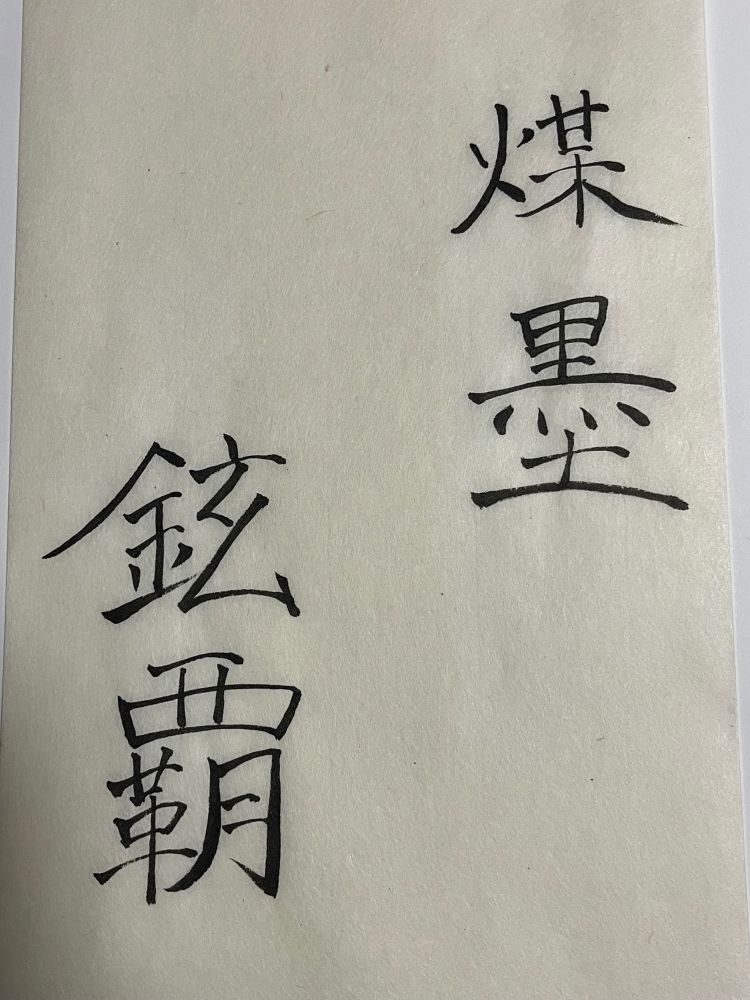 煤墨
鉉覇